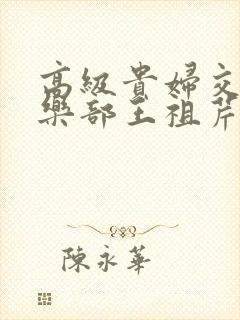 高級貴婦交
樂部王祖芹
陳永華